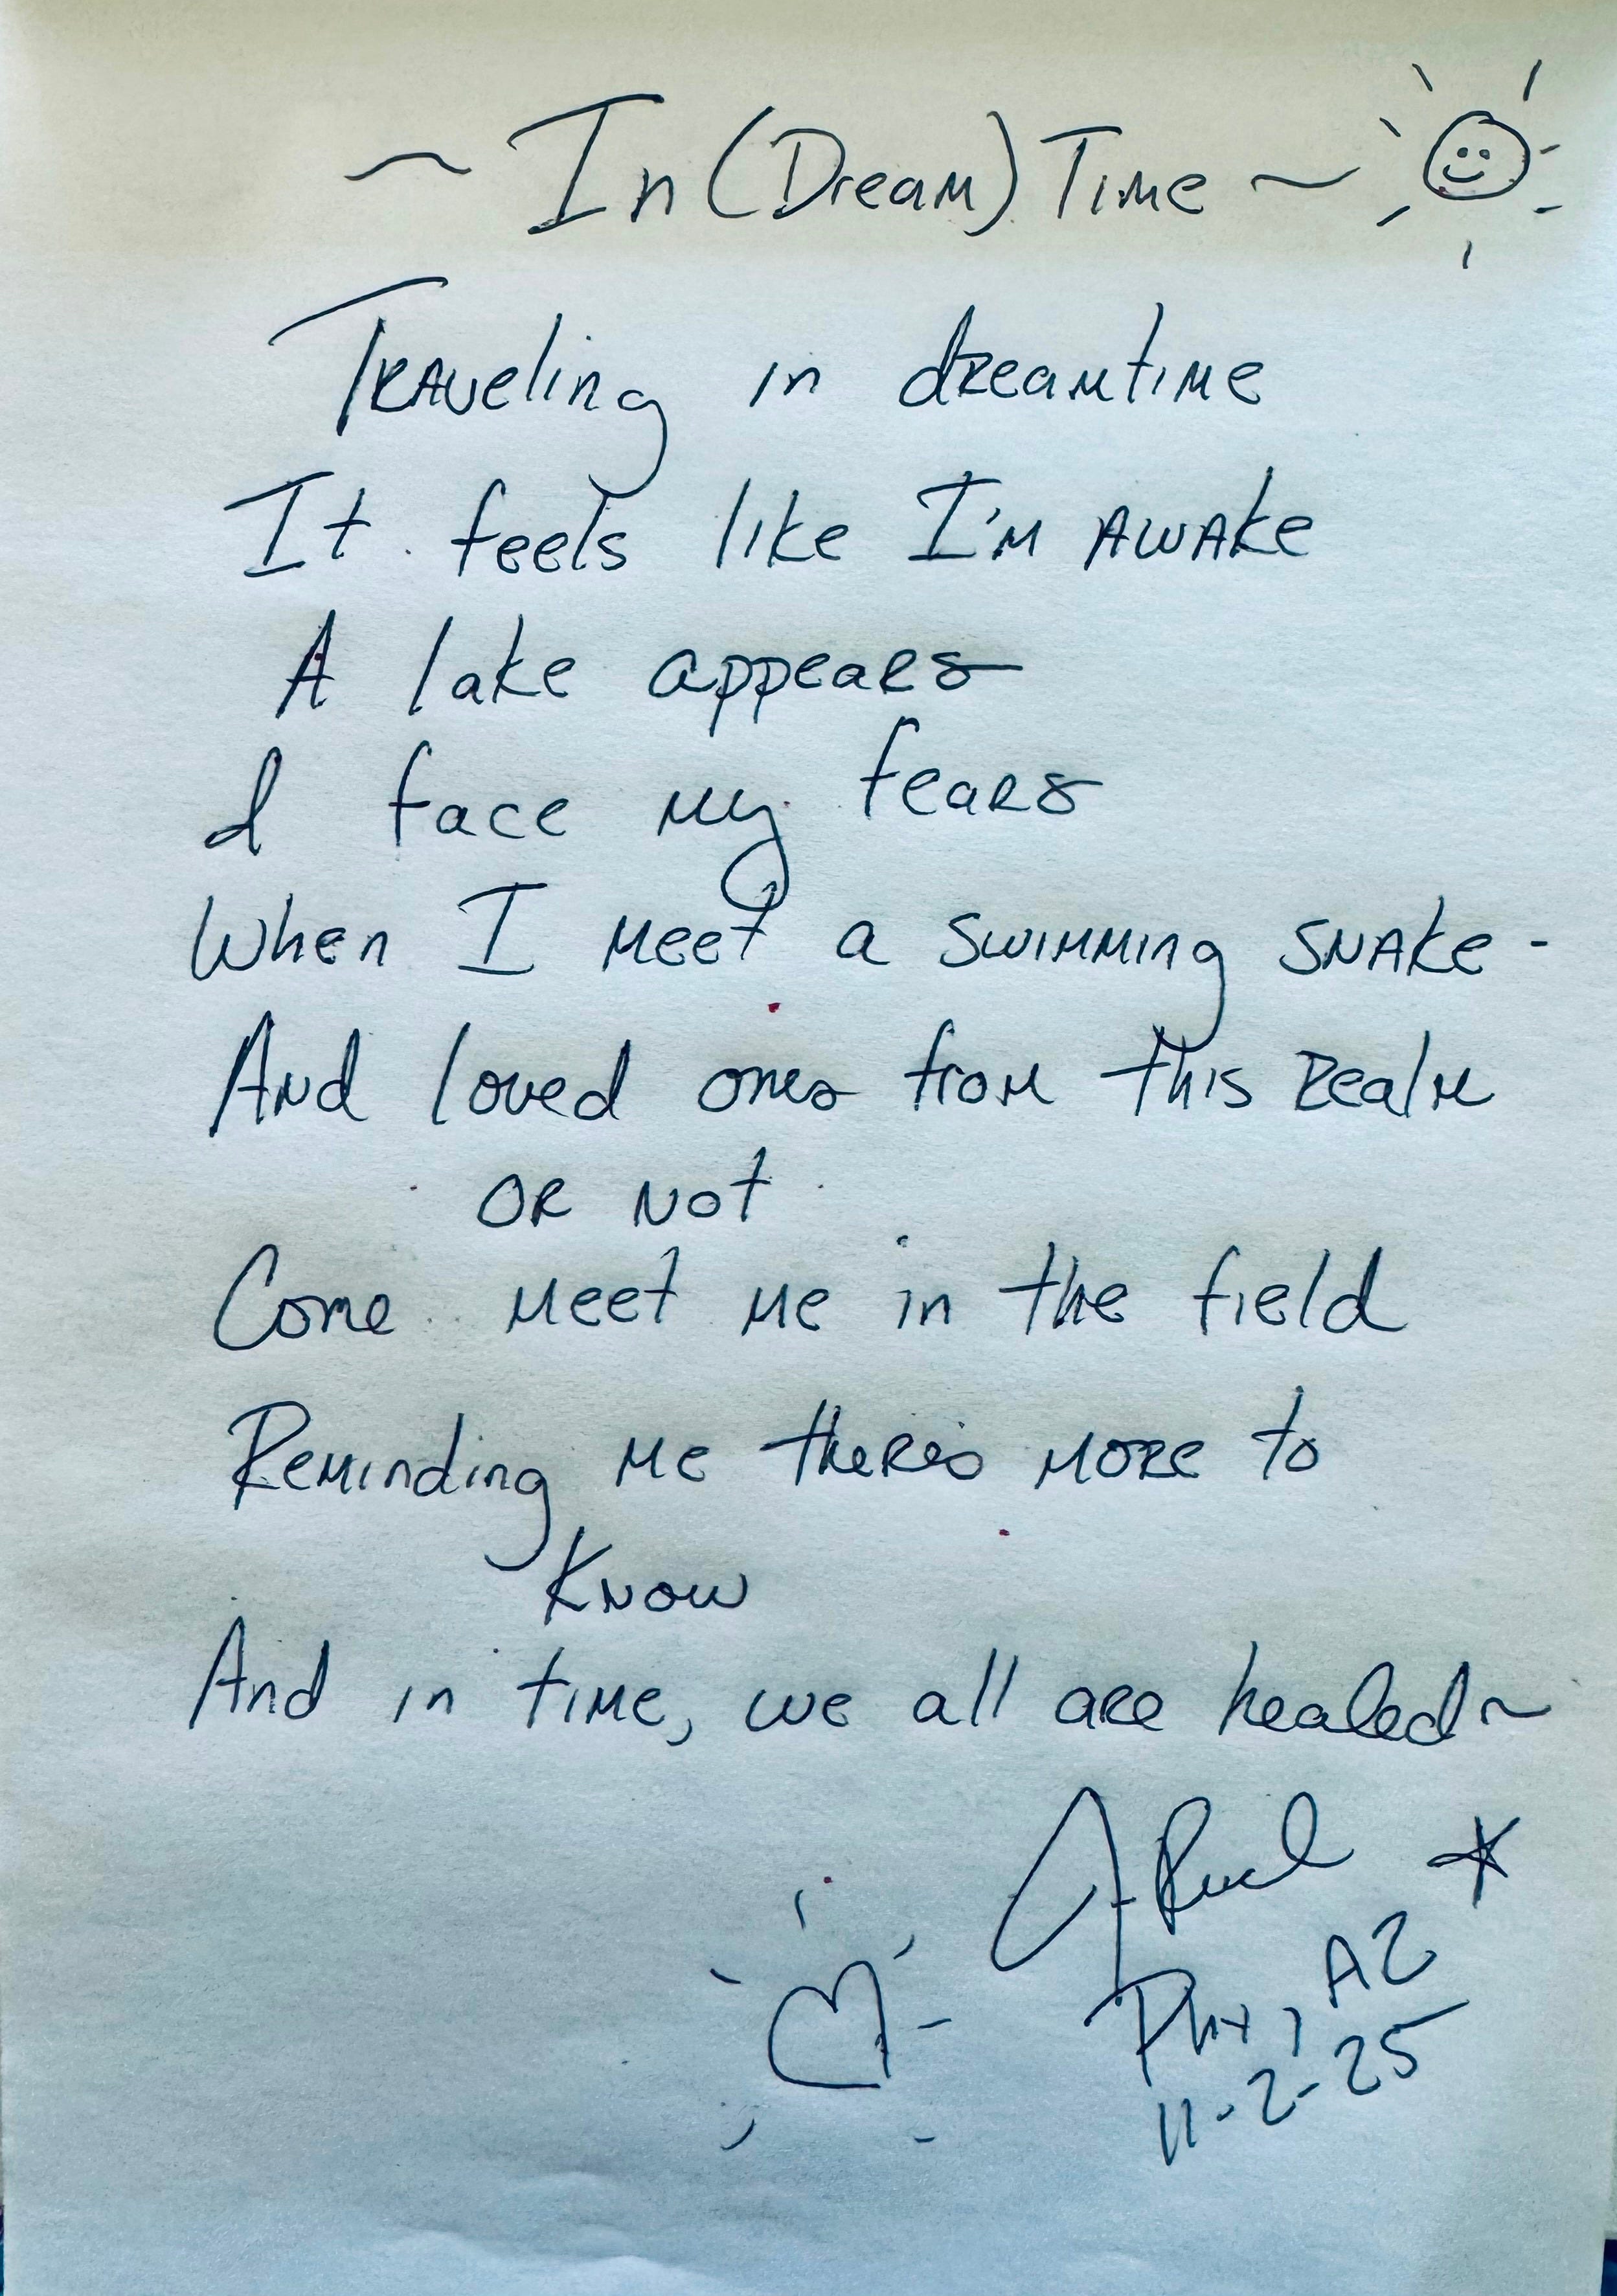 ~ In (Dream) Time ~
Traveling in dreamtime
It feels like I'm awake
A lake appears
I face my fears
When I meet a swimming snake -
And loved ones from this realm
or not
Come meet me in the field
Reminding me there's more to
know
And in time, we all are healed ~
Phx, AZ
11-2-25